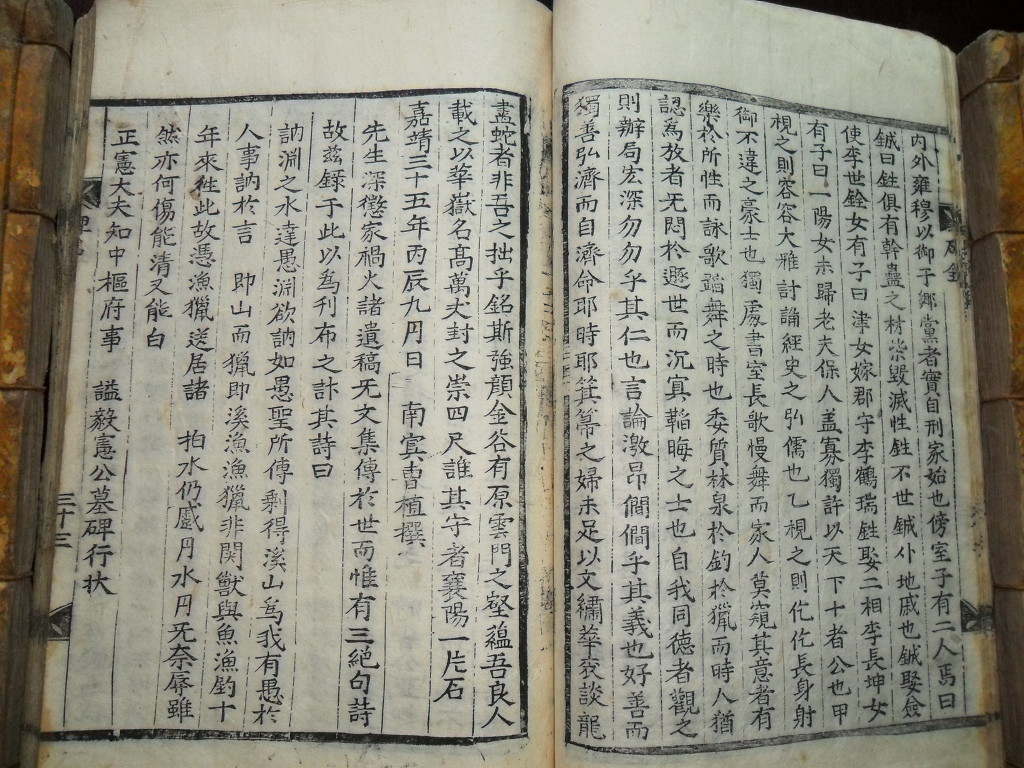 內外雍穆以御于鄉黨者實自刑家始也傍室子有二人焉曰
鋮曰鉎俱有幹蠱之材柴毀滅性鉎不世鋮仆地戚也鋮娶僉
使李世銓女有子曰津女嫁郡守李鶴瑞鉎娶二相李長坤女
有子曰一陽女未歸老夫保人盖寡獨許以天下士者公也甲
視之則容容大雅討論經史之弘儒也乙視之則仡仡長身射
御不違之豪士也獨處書室長歌慢舞而家人莫窺其意者有
樂於所性而詠歌蹈舞之時也委質林泉於釣於獵而時人猶
認爲放者无悶於遯世而沉冥韜晦之士也自我同德者觀之
則辦局宏深勿勿乎其仁也言論激昂僴僴乎其義也好善而
獨善弘濟而自濟命耶時耶箕箒之婦未足以文繡華衮談龍
盡蛇者非吾之拙乎銘斯強顔金谷有原雲門之壑蘊吾良人
載之以華嶽名髙萬丈封之崇四尺誰其守者襄陽一片石
嘉靖三十五年丙辰九月日 南㝠曺植撰
先生深懲家禍火諸遺稿旡文集傳於世而惟有三絕句詩
故兹録于此以爲刋布之計其詩曰
訥淵之水達愚淵欲訥如愚聖所傳剩得溪山爲我有愚於
人事訥於言 即山而獵即溪漁漁獵非関獸與魚漁釣十
年來徃此故憑漁獵送居諸 拍水仍感月水月旡奈辱雖
然亦何傷能清又能白
正憲大夫知中樞府事 謚毅憲公墓碑行狀
三十三